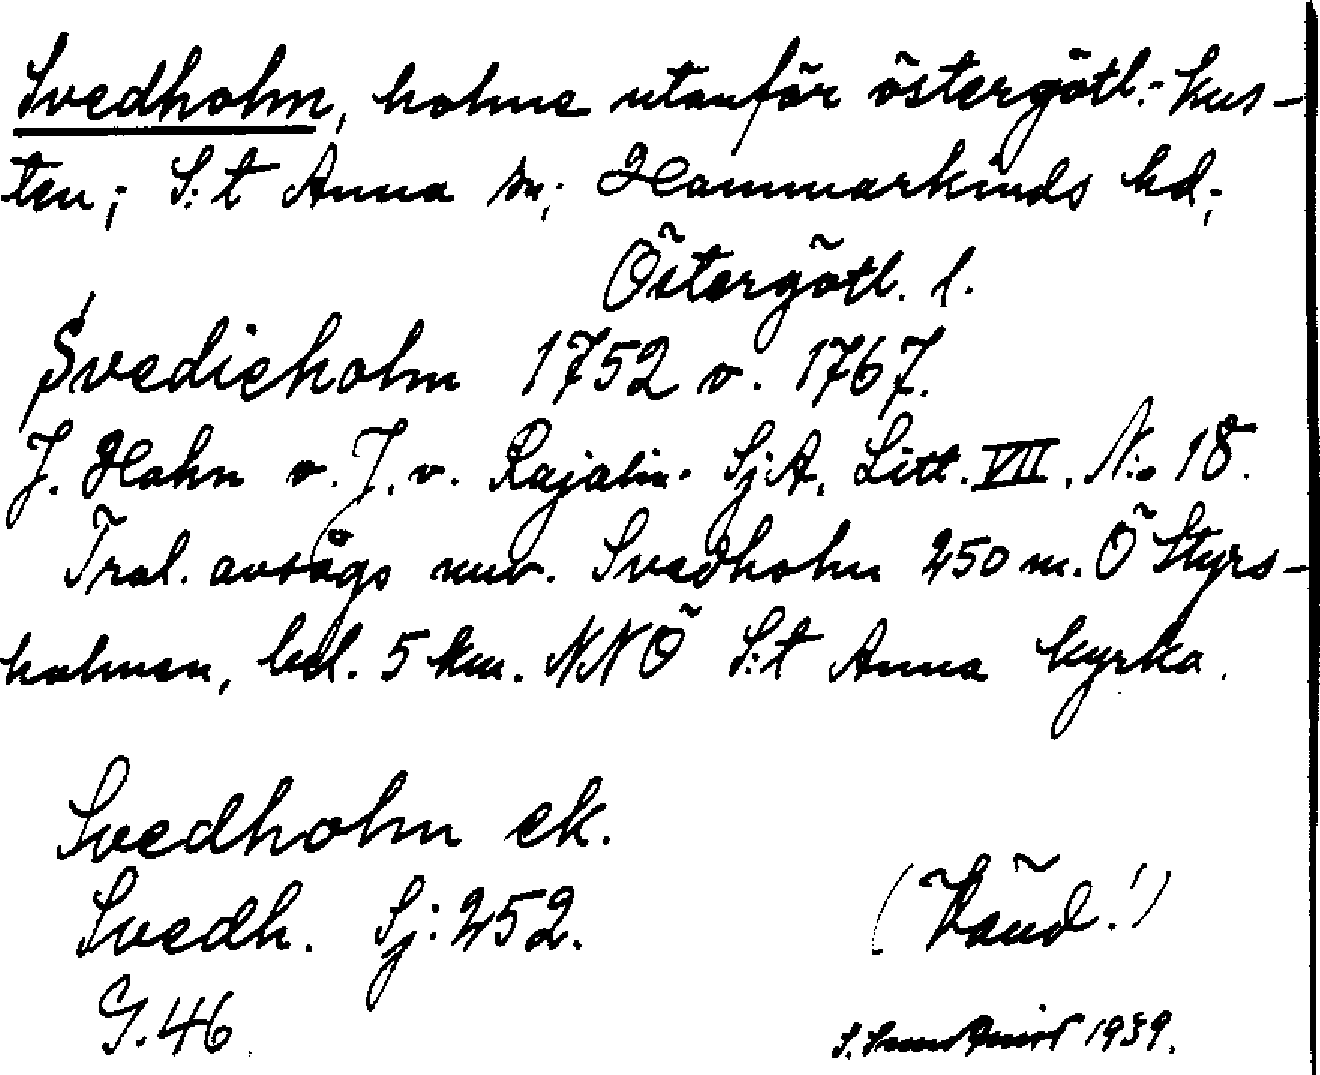 Svedholm, holme utanför östergötl.-kus-
ten; S:t Anna sn; Hammarkinds hd;
Östergötl. l.
Svedieholm 1752 o. 1767.
J. Hahn o. J. v. Rajalin. Sj.A. Litt. VII. N:o 18.
Trol. avsågs nuv. Svedholm 250 m. Ö Styrs-
holmen, bel. 5 km. NNÖ S:t Anna kyrka.
Svedholm ek.
Svedh. Sj: 252.
G. 46
(Vänd!)
S. 1939.